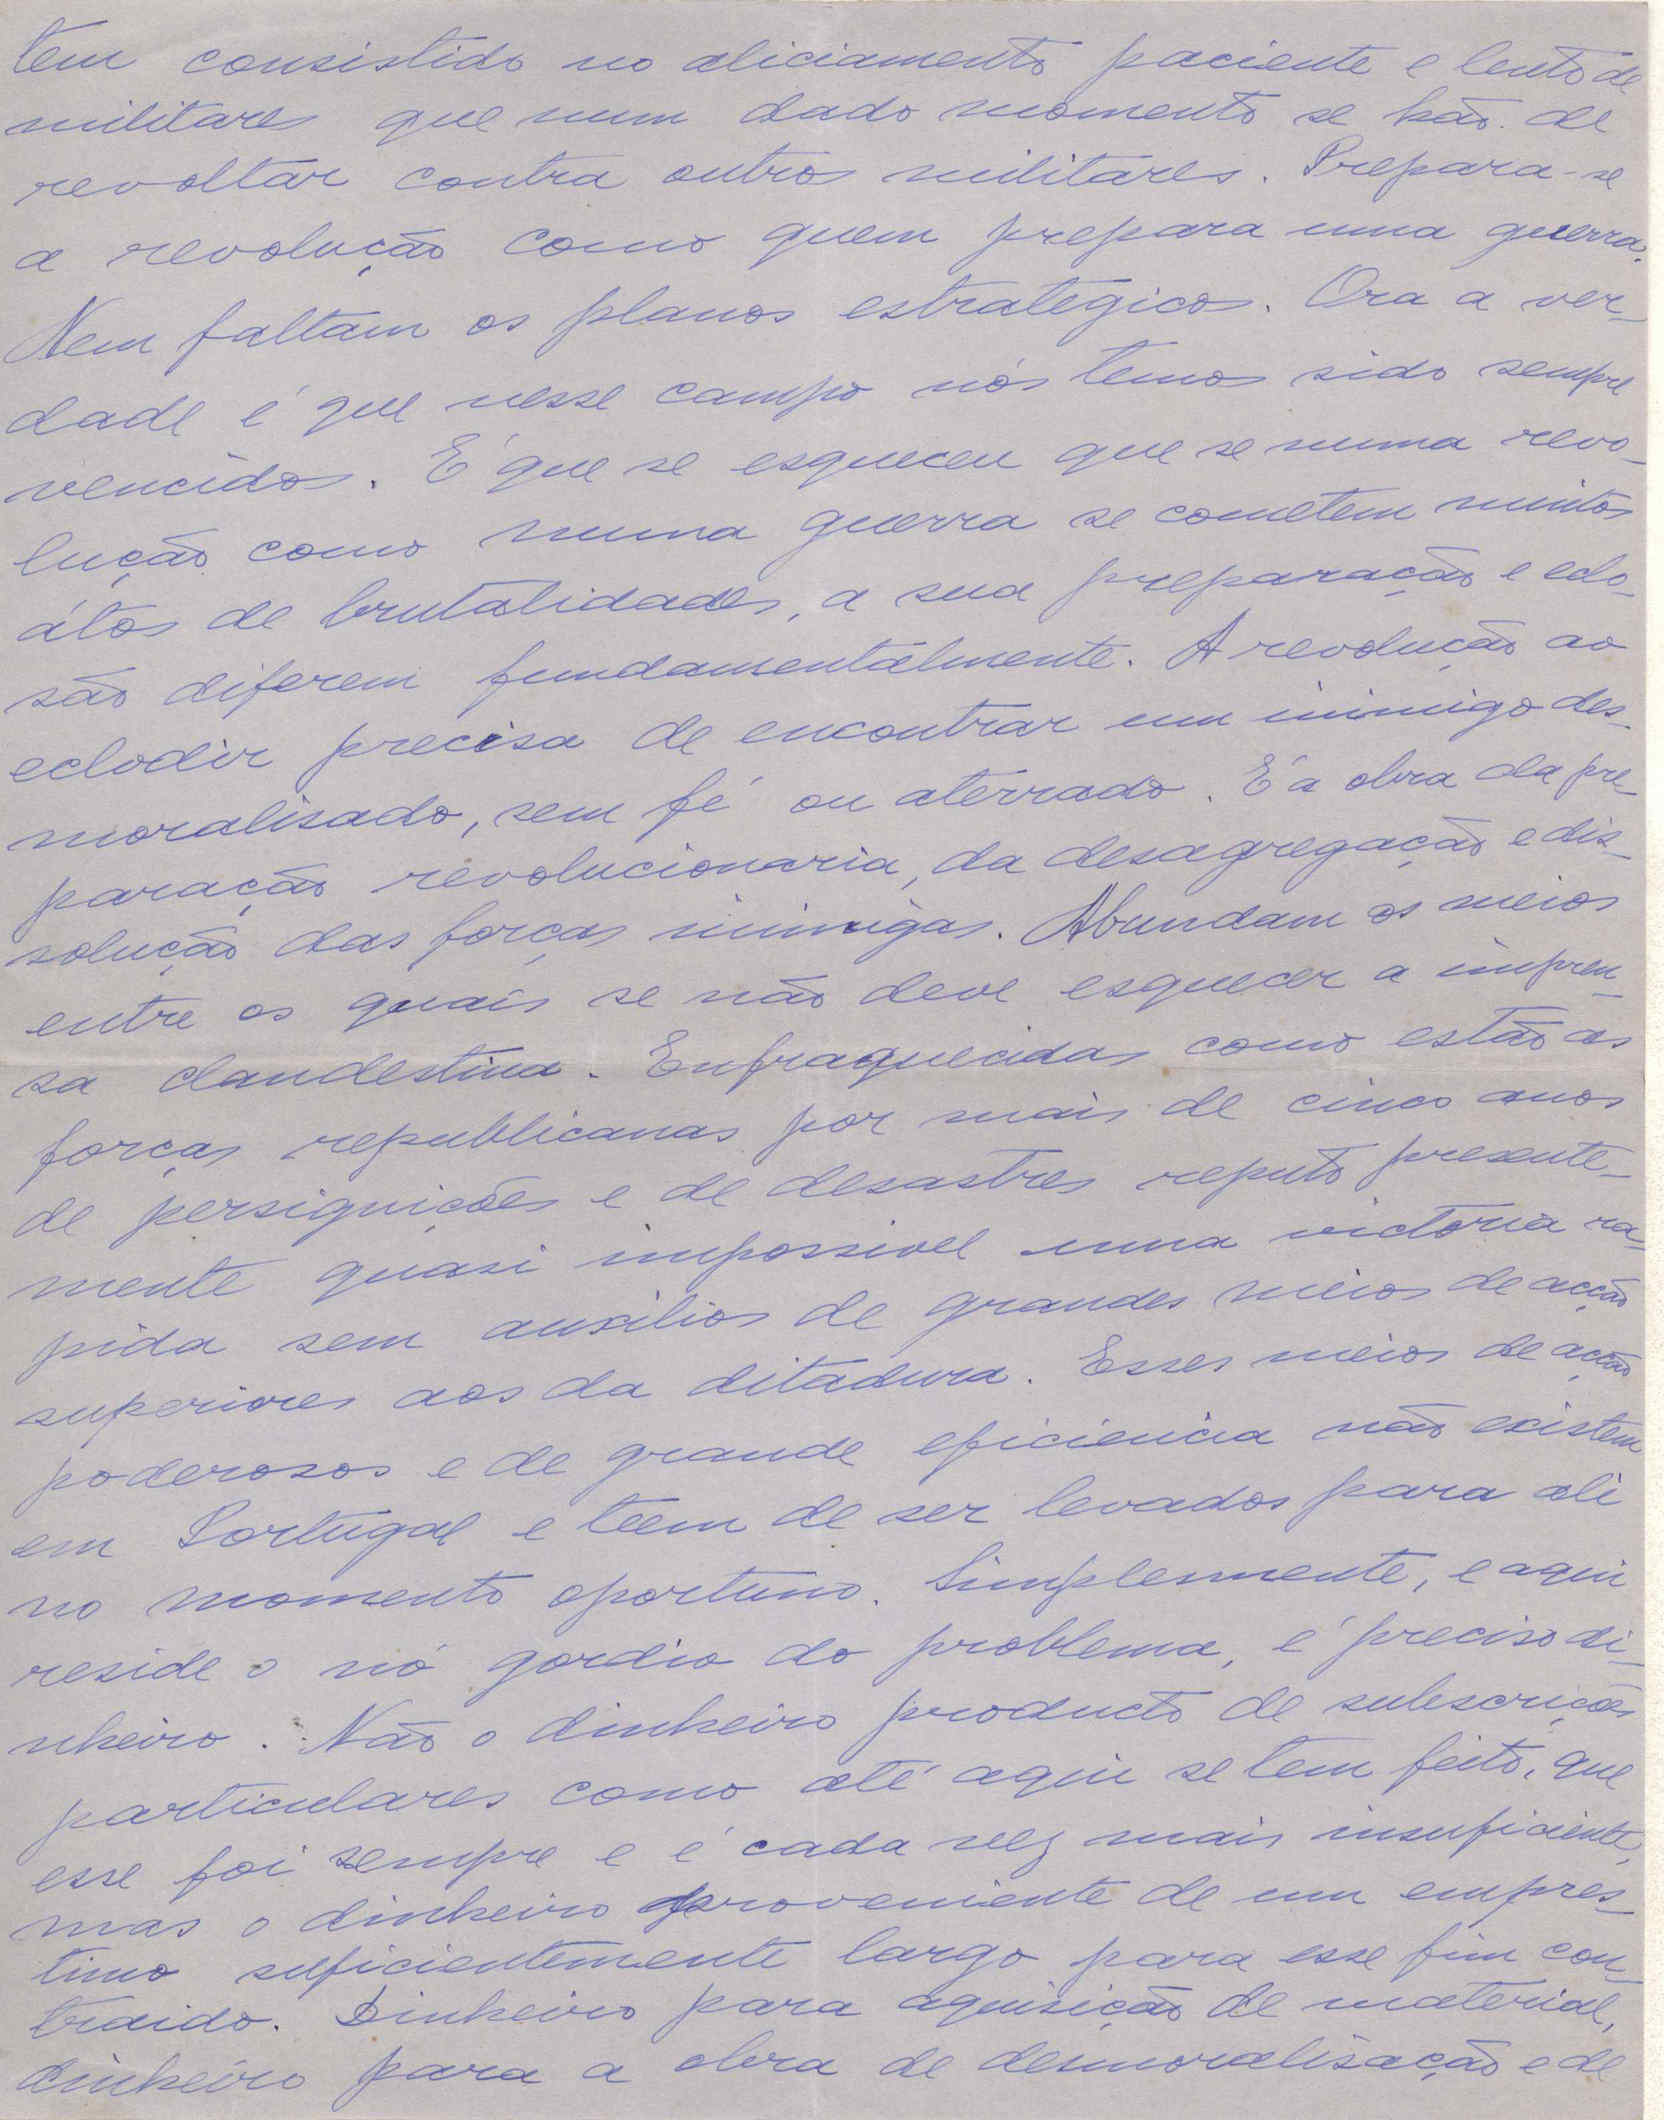 tem consistido no aliciamento paciente e lento de
militares que num dado momento se hão de
revoltar contra outros militares. Prepara-se
a revolução como quem prepara uma guerra.
Nem faltam os planos estrategicos. Ora a ver-
dade é que nesse campo nós temos sido sempre
vencidos. E' que se esqueceu que se numa revo-
lução como numa guerra se cometem muitos
átos de brutalidades, a sua preparação e eclo-
são diferem fundamentalmente. A revolução ao
eclodir precisa de encontrar um inimigo des-
moralisado, sem fé ou aterrado. E' a obra da pre-
paração revolucionaria, da desagregação e dis-
solução das forças inimigas. Abundam os meios
entre os quais se não deve esquecer a impren-
sa clandestina. Enfraquecidas como estão as
forças republicanas por mais de cinco anos
de persiguições e de desastres reputo presente-
mente quasi impossivel uma victoria ra-
pida sem auxilios de grandes meios de acção
superiores aos da ditadura. Esses meios de acção
poderosos e de grande eficiencia não existem
em Portugal e teem de ser levados para ali
no momento oportuno. Simplesmente, e aqui
reside o nó gordio do problema, é preciso di-
nheiro. Não o dinheiro producto de subscrições
particulares como até aqui se tem feito, que
esse foi sempre e é cada vez mais insuficiente,
mas o dinheiro proveniente de um empres-
timo suficientemente largo para esse fim con-
traido. Dinheiro para aquisição de material,
dinheiro para a obra de desmoralisação e de